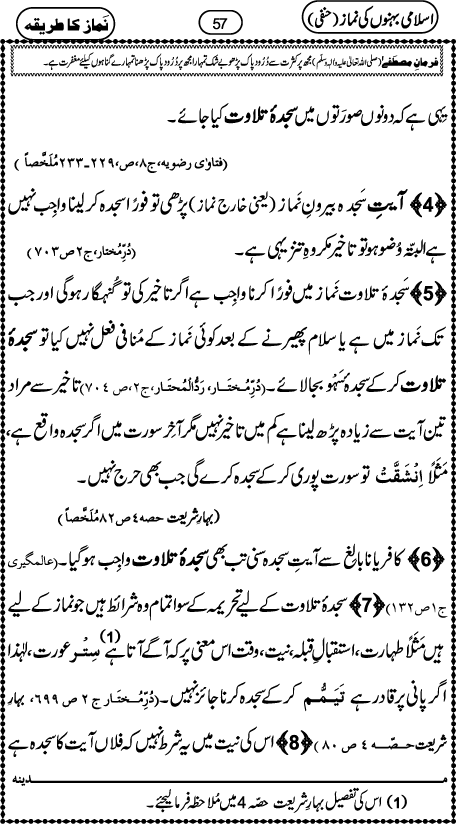 اسلامی بہنوں کی نماز (حنفی)
57
نماز کا طریقہ
فرمانِ مصطفےٰ (صلی اللہ تعالیٰ علیہ واٰلہٖ وسلم) مجھ پر کثرت سے دُرُودِ پاک پڑھو بے شک تمہارا مجھ پر دُرُودِ پاک پڑھنا تمہارے گناہوں کیلئے مغفرت ہے۔
یہی ہے کہ دونوں صورَتوں میں سجدۂ تلاوت کیا جائے۔
(فتاوٰی رضویہ، ج۸، ص، ۲۲۹۔۲۳۳ مُلَخَّصاً)
﴿4﴾ آیتِ سَجدہ بیرونِ نَماز (یعنی خارجِ نماز) پڑھی تو فورًا سجدہ کر لینا واجب نہیں
ہے البتّہ وُضو ہو تو تاخیر مکروہِ تنزیہی ہے۔ (دُرِّمُختار، ج۲ ص۷۰۳)
﴿5﴾ سَجدۂ تلاوت نَماز میں فورًا کرنا واجب ہے اگر تاخیر کی تو گُنہگار ہوگی اور جب
تک نَماز میں ہے یا سلام پھیرنے کے بعد کوئی نَماز کے مُنافی فعل نہیں کیا تو سجدۂ
تلاوت کر کے سجدۂ سَہْو بجا لائے۔ (دُرِّمُختَار، رَدُّالْمُحتَار، ج۲، ص ۷۰۴) تاخیر سے مراد
تین آیت سے زیادہ پڑھ لینا ہے کم میں تاخیر نہیں مگر آخِرِ سورت میں اگر سجدہ واقع ہے،
مَثَلًا اِنْشَقَّتْ تو سورت پوری کر کے سجدہ کرے گی جب بھی حَرَج نہیں۔
(بہارِ شریعت حصہ ۴ ص ۸۲ مُلَخَّصاً)
﴿6﴾ کافر یا نابالِغ سے آیتِ سجدہ سنی تب بھی سجدۂ تلاوت واجب ہو گیا۔ (عالمگیری
ج۱ ص۱۳۲) ﴿7﴾ سجدۂ تلاوت کے لیے تحریمہ کے سوا تمام وہ شرائط ہیں جو نماز کے لیے
ہیں مَثَلًا طہارت، استقبالِ قبلہ، نیت، وقت اس معنی پر کہ آگے آتا ہے (1) سِتْرِ عورت، لہٰذا
اگر پانی پر قادر ہے تَیَمُّم کر کے سجدہ کرنا جائز نہیں۔ (دُرِّمُختَار ج ۲ ص ۶۹۹، بہارِ
شریعت حصّہ ۴ ص ۸۰) ﴿8﴾ اس کی نیت میں یہ شرط نہیں کہ فلاں آیت کا سجدہ ہے
مدینہ
(1) اس کی تفصیل بہارِ شریعت حصّہ 4 میں مُلاحَظہ فرما لیجئے۔